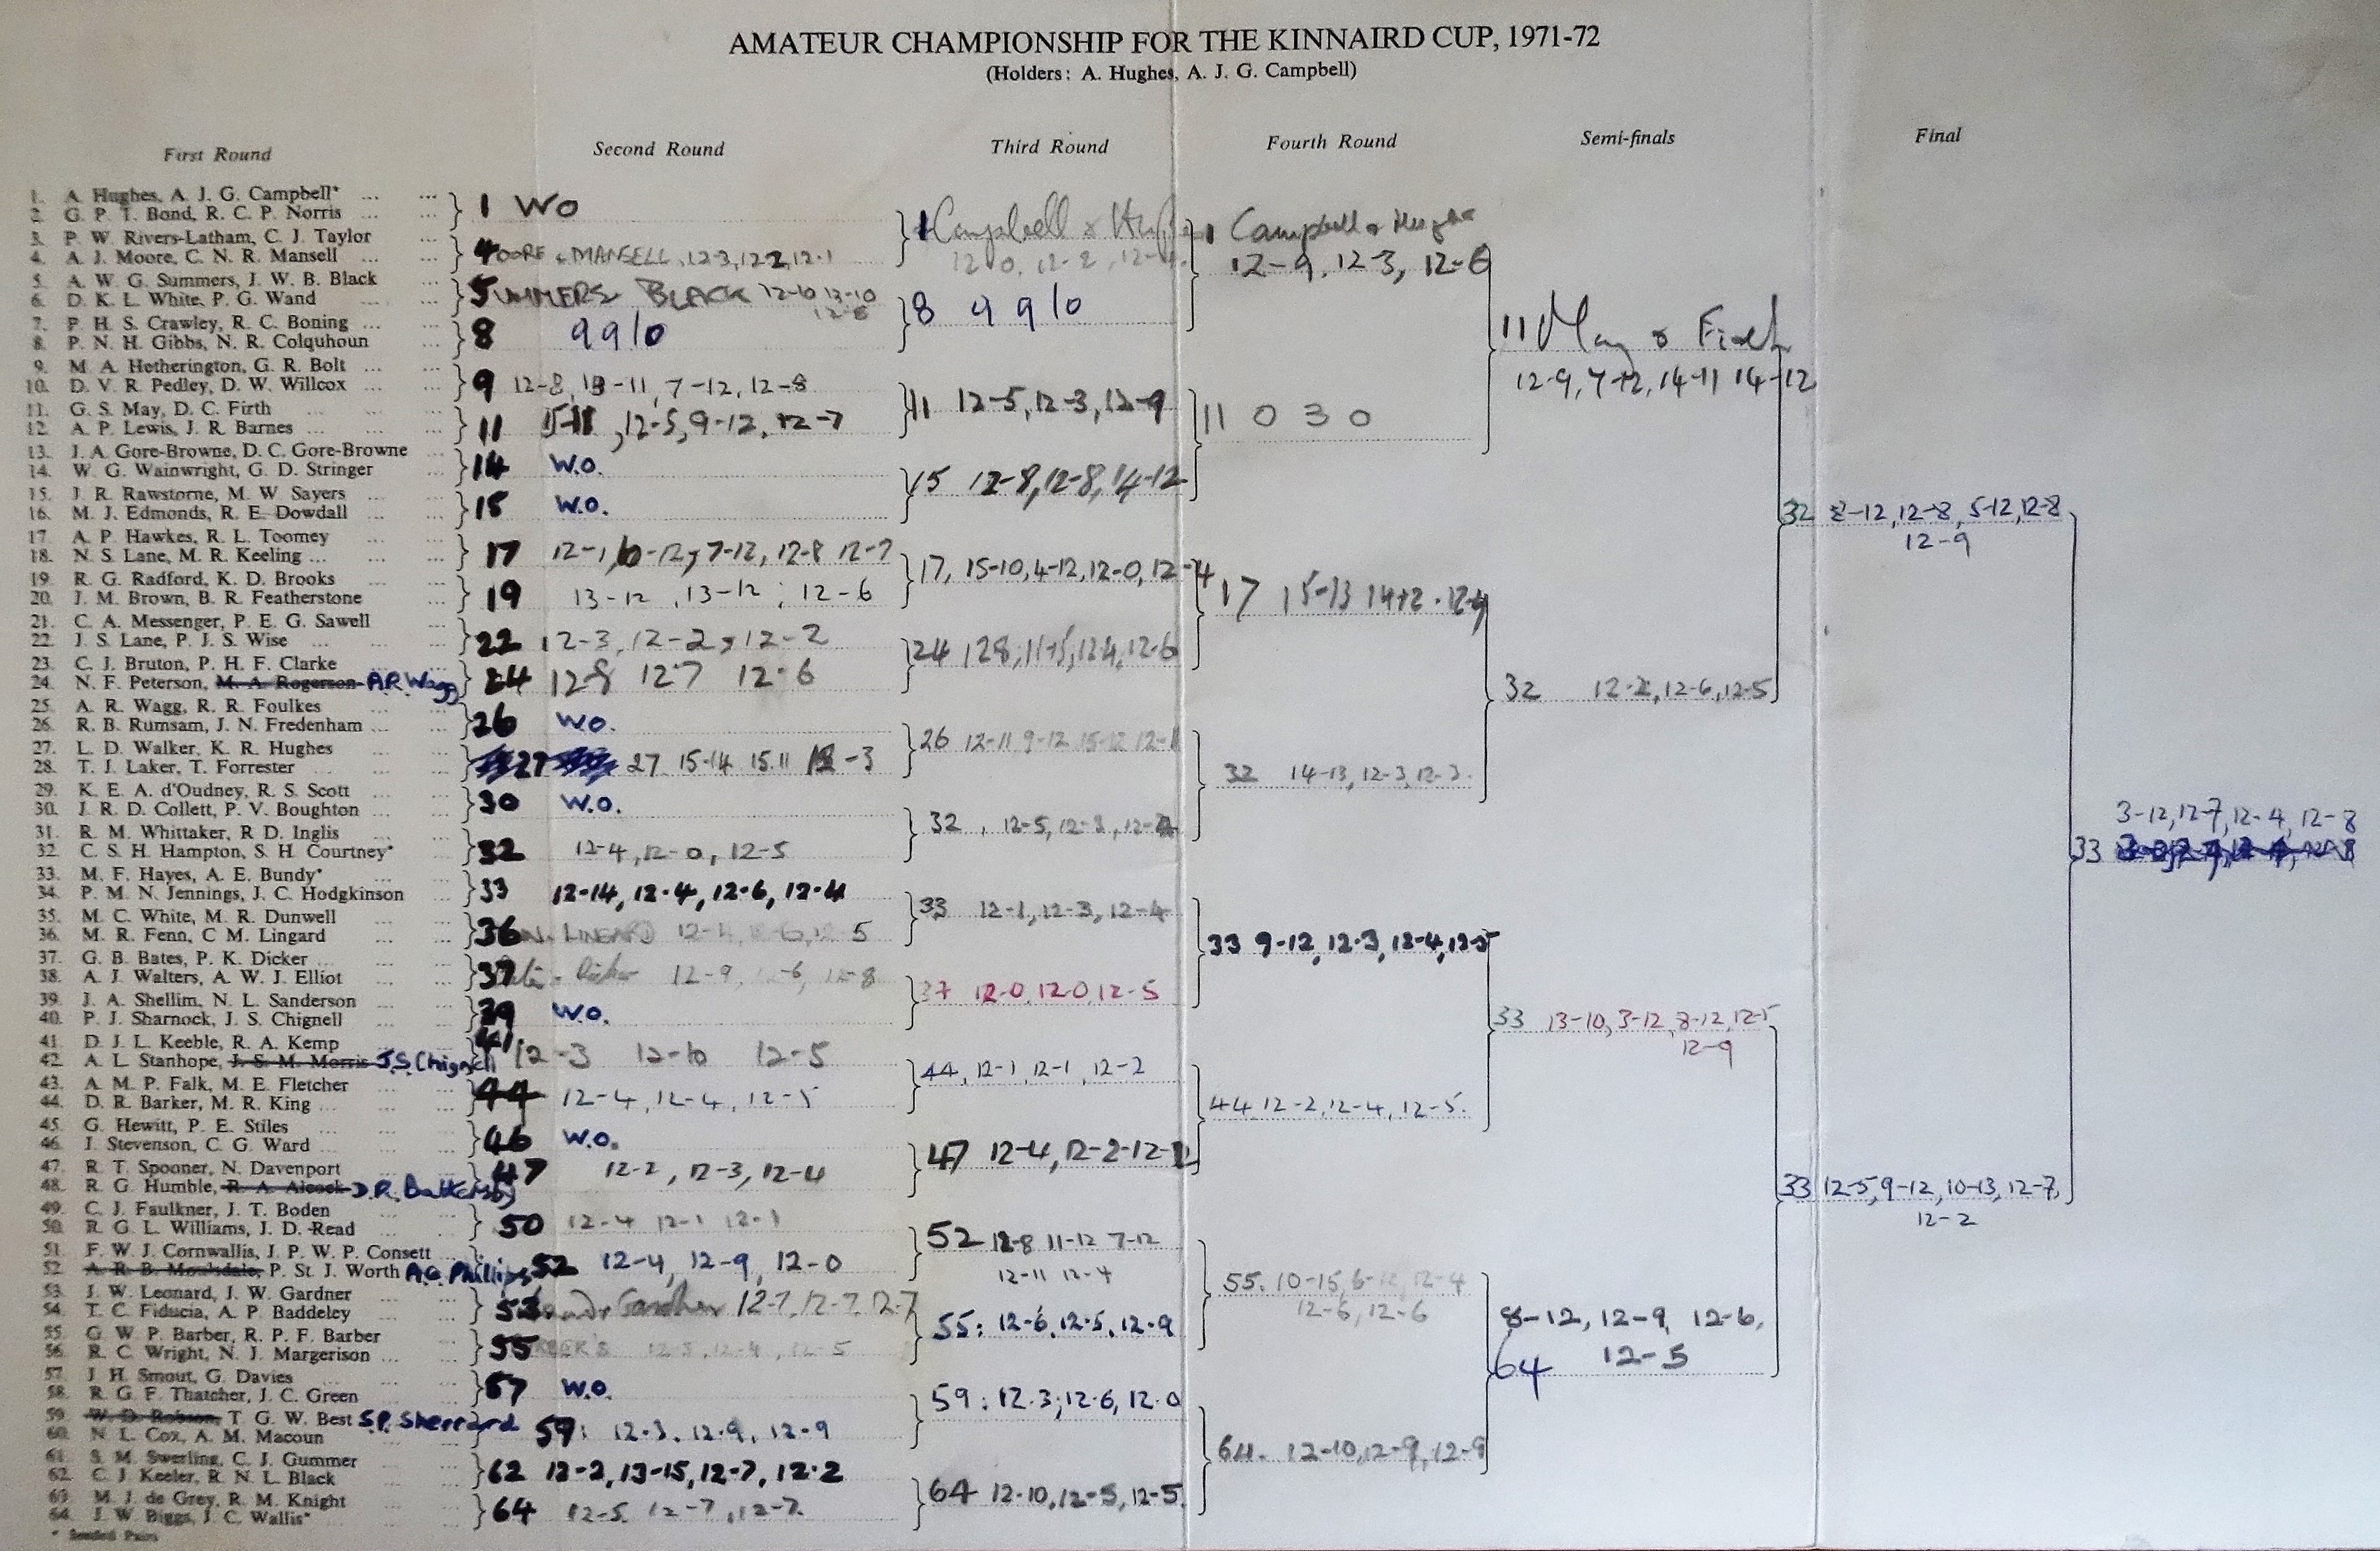 AMATEUR CHAMPIONSHIP FOR THE KINNAIRD CUP, 1971-72
(Holders: A. Hughes, A. J. G. Campbell)
First Round
1. A. Hughes, A. J. G. Campbell*
2. G. P. T. Bond, R. C. P. Norris
3. P. W. Rivers-Latham, C. J. Taylor
4. A. J. Moore, C. N. R. Mansell
5. A. W. G. Summers, J. W. B. Black
6. D. K. L. White, P. G. Wand
7. P. H. S. Crawley, R. C. Boning
8. P. N. H. Gibbs, N. R. Colquhoun
9. M. A. Hetherington, G. R. Bolt
10. D. V. R. Pedley, D. W. Willcox
11. G. S. May, D. C. Firth
12. A. P. Lewis, J. R. Barnes
13. J. A. Gore-Browne, D. C. Gore-Browne
14. W. G. Wainwright, G. D. Stringer
15. J. R. Rawstorne, M. W. Sayers
16. M. J. Edmonds, R. E. Dowdall
17. A. P. Hawkes, R. L. Toomey
18. N. S. Lane, M. R. Keeling
19. R. G. Radford, K. D. Brooks
20. J. M. Brown, B. R. Featherstone
21. C. A. Messenger, P. E. G. Sawell
22. J. S. Lane, P. J. S. Wise
23. C. J. Bruton, P. H. F. Clarke
24. N. F. Peterson, M. A. Rogerson A.R. Wagg
25. A. R. Wagg, R. R. Foulkes
26. R. B. Rumsam, J. N. Fredenham
27. L. D. Walker, K. R. Hughes
28. T. J. Laker, T. Forrester
29. K. E. A. d'Oudney, R. S. Scott
30. J. R. D. Collett, P. V. Boughton
31. R. M. Whittaker, R D. Inglis
32. C. S. H. Hampton, S. H. Courtney*
33. M. F. Hayes, A. E. Bundy*
34. P. M. N. Jennings, J. C. Hodgkinson
35. M. C. White, M. R. Dunwell
36. M. R. Fenn, C M. Lingard
37. G. B. Bates, P. K. Dicker
38. A. J. Walters, A. W. J. Elliot
39. J. A. Shellim, N. L. Sanderson
40. P. J. Sharnock, J. S. Chignell
41. D. J. L. Keeble, R. A. Kemp
42. A. L. Stanhope, J. S. M. Morris J.S. Chignell
43. A. M. P. Falk, M. E. Fletcher
44. D. R. Barker, M. R. King
45. G. Hewitt, P. E. Stiles
46. J. Stevenson, C. G. Ward
47. R. T. Spooner, N. Davenport
48. R. G. Humble, R. A. Alcock D.R. Battersby
49. C. J. Faulkner, J. T. Boden
50. R. G. L. Williams, J. D. Read
51. F. W. J. Cornwallis, J. P. W. P. Consett
52. A. R. B. P. St. J. Worth A.G. Phillips
53. J. W. Leonard, J. W. Gardner
54. T. C. Fiducia, A. P. Baddeley
55. G. W. P. Barber, R. P. F. Barber
56. R. C. Wright, N. J. Margerison
57. J. H. Smout, G. Davies
58. R. G. F. Thatcher, J. C. Green
59. W. D. Robson, T. G. W. Best S.P. Sherrard
60. N. L. Cox, A. M. Macoun
61. S. M. Swerling, C. J. Gummer
62. C. J. Keeler, R. N. L. Black
63. M. J. de Grey, R. M. Knight
64. J. W. Biggs, J. C. Wallis*
* Seeded Pairs
Second Round
1 WO
4 OORE & MANSELL, 12-3, 12-2, 12-1
5 UMMERS BLACK 12-10 13-10
8 9 9 10
9 12-8, 13-11, 7-12, 12-8
11 15-11, 12-5, 9-12, 12-7
14 W.O.
15 W.O.
17 12-1, 10-12, 7-12, 12-8 12-7
19 13-12, 13-12; 12-6
22 12-3, 12-2, 12-2
24 12-8 12-7 12-6
26 W.O.
27 27 15-14 15.11 12-3
30 W.O.
32 12-4, 12-0, 12-5
33 12-14, 12-4, 12-6, 12-4
36 LINGARD
37 Dicker 12-9
39 W.O.
41 12-3 12-10 12-5
44 12-4, 12-4, 12-5
46 W.O.
47 12-2, 12-3, 12-4
50 12-4 12-1 12-1
52 12-4, 12-9, 12-0
53 Gardner 12-7, 12-7, 12-7
55
57 W.O.
59: 12-3, 12-9, 12-9
62 12-2, 13-15, 12-7, 12-2
64 12-5, 12-7, 12-7
Third Round
1 Campbell & Hughes
12-0, 12-2,
8 9 9 10
11 12-5, 12-3, 12-9
15 12-8, 12-8, 14-12
17, 15-10, 4-12, 12-0, 12-4
24 12 8, 11-15, 12-4, 12-6
26 12-11 9-12 15-12
32, 12-5, 12-3,
33 12-1, 12-3, 12-4
37 12-0, 12-0, 12-5
44, 12-1, 12-1, 12-2
47 12-4, 12-2-12-
52 12-8 11-12 7-12
12-11 12-4
55: 12-6, 12-5, 12-9
59: 12-3; 12-6, 12-0
64 12-10, 12-5, 12-5
Fourth Round
1 Campbell & Hughes
12-9, 12-3, 12-6
11 0 3 0
17 15-13 14-12
32 14-13, 12-3, 12-3.
33 9-12, 12-3, 12-4, 12-5
44 12-2, 12-4, 12-5.
55. 10-15, 6-12, 12-4
12-6, 12-6
64. 12-10, 12-9, 12-9
Semi-finals
11 May & Firth
12-9, 7-12, 14-11 14-12
32 12-2, 12-6, 12-5
33 13-10, 3-12, 8-12, 12-5
12-9
8-12, 12-9, 12-6,
64 12-5
Final
32 8-12, 12-8, 5-12, 12-8
12-9
33 12-5, 9-12, 10-13, 12-7,
12-2
3-12, 12-7, 12-4, 12-8
33